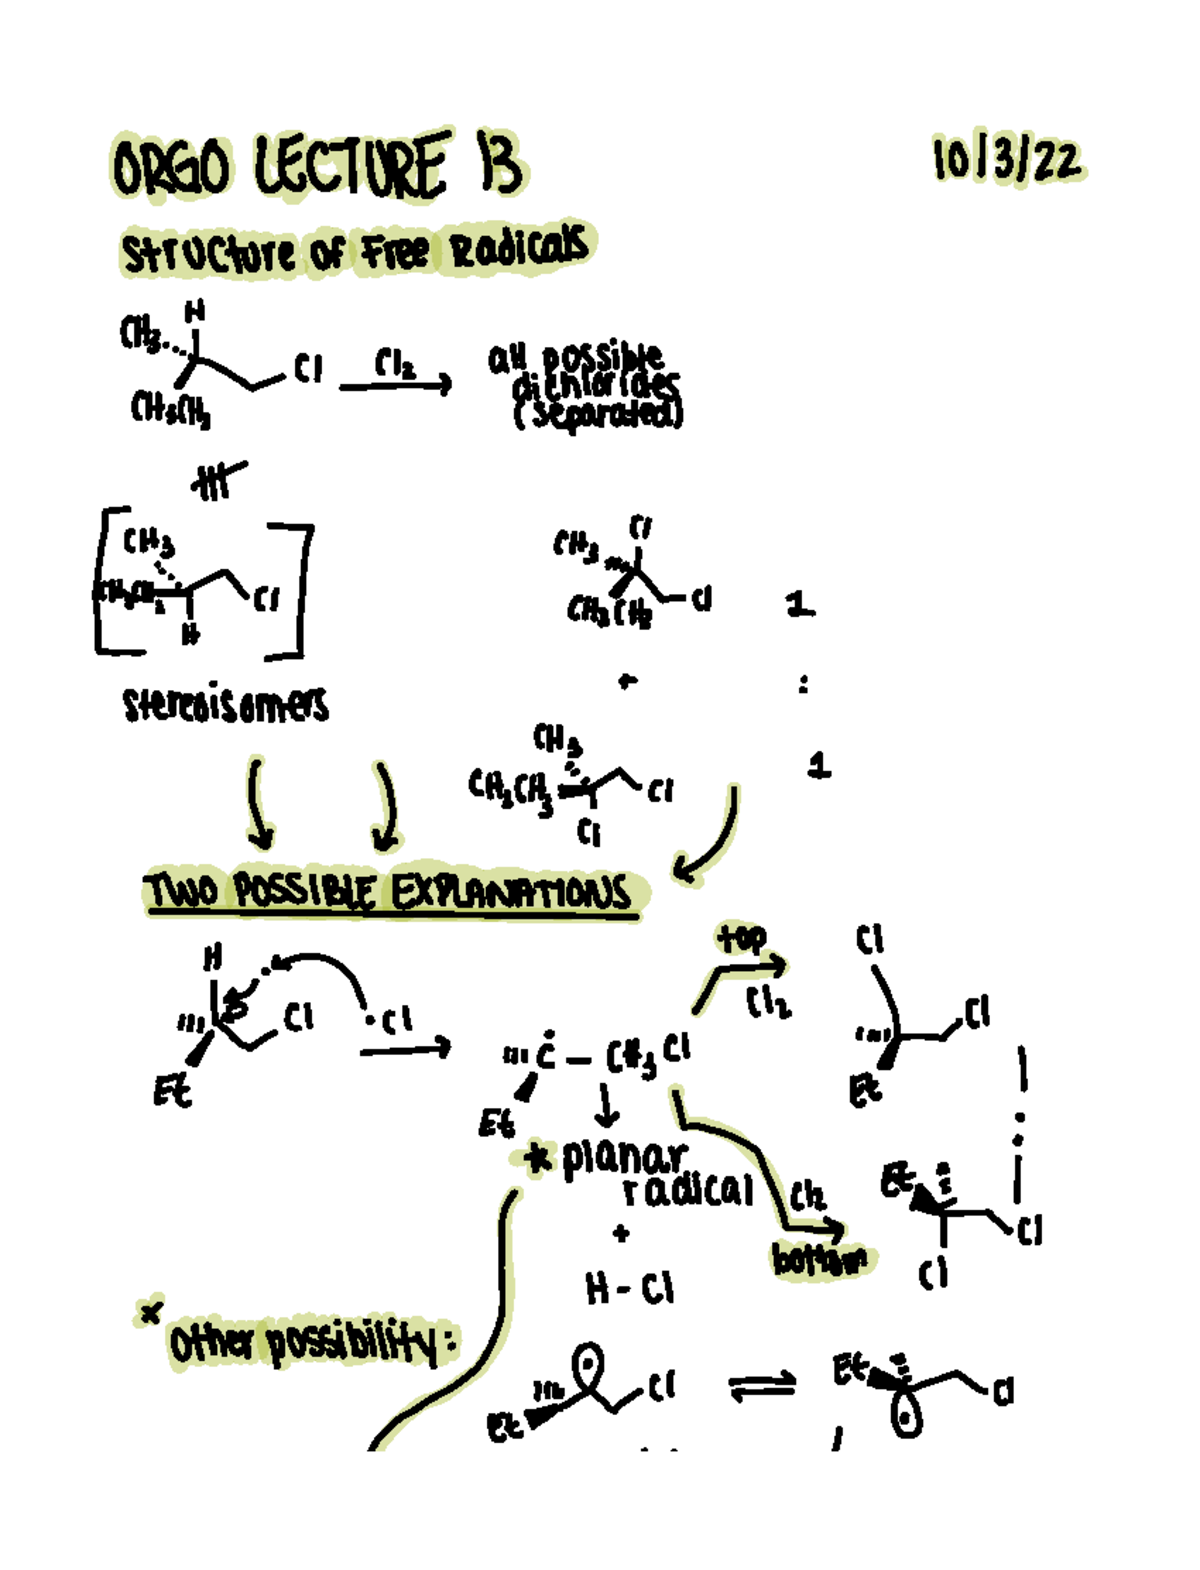 ORGO LECTURE 13
10/3/22
Structure of Free Radicals
H
CH3
Cl
CH3CH2
Cl2
all possible
dichlorides
(separated)
CH3
CH3CH2
Cl
H
stereoisomers
Cl
CH3
CH3CH2
Cl
1
+
:
1
CH3
CH2CH3
Cl
Cl
TWO POSSIBLE EXPLANATIONS
H
Cl
Et
·Cl
Ċ - CH3 Cl
Et
* planar
radical
+
H - Cl
top
Cl2
Cl
Cl
Et
Cl2
bottom
Et
Cl
Cl
* other possibility:
Cl
Et
Et
Cl